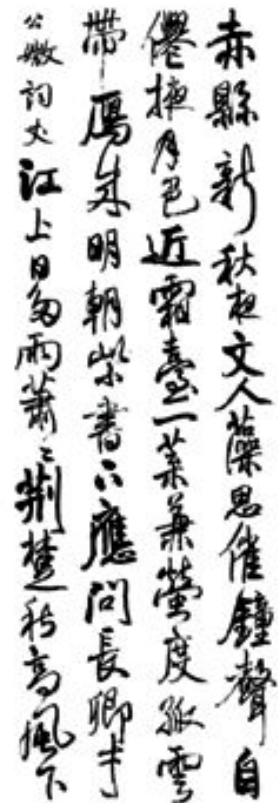 赤縣新秋夜文人藻思催鐘聲自
僊掖月色近霜臺一葉兼螢度孤雲
帶鴈來明朝紫書下應問長卿才
公詞丈江上日多雨蕭〻荆楚秋高風下